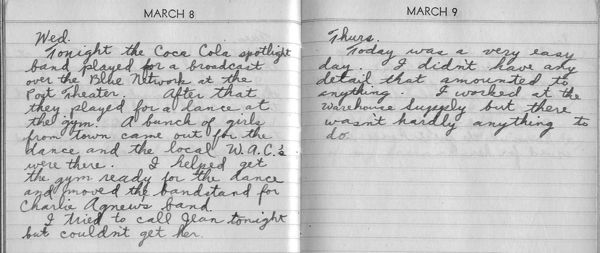 MARCH 8
Wed.
Tonight the Coca Cola spotlight
band played for a broadcast
over the Blue Network at the
Post Theater. After that
they played for a dance at
the gym. A bunch of girls
from town came out for the
dance and the local W.A.C.'s
were there. I helped get
the gym ready for the dance
and moved the bandstand for
Charlie Agnews band.
I tried to call Jean tonight
but couldn't get her.
MARCH 9
Thurs.
Today was a very easy
day. I didn't have any
detail that amounted to
anything. I worked at the
warehouse supply but there
wasn't hardly anything to
do.